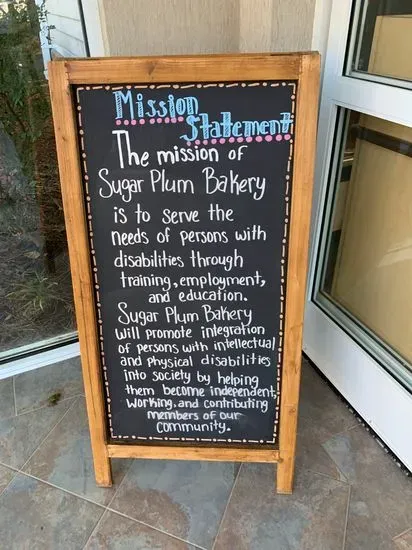 Mission
Statement
The mission of
Sugar Plum Bakery
is to serve the
needs of persons with
disabilities through
training, employment,
and education.
Sugar Plum Bakery
will promote integration
of persons with intellectual
and physical disabilities
into society by helping
them become independent,
working, and contributing
members of our
community.